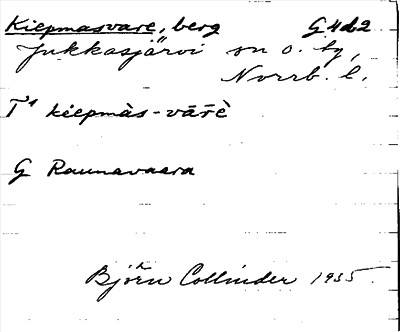 Kiepmasvare, berg G4d2
Jukkasjärvi sn o. tg,
Norrb. l.
T¹ kiepmàs-vārè̄
G Raunavaara
Björn Collinder 1935